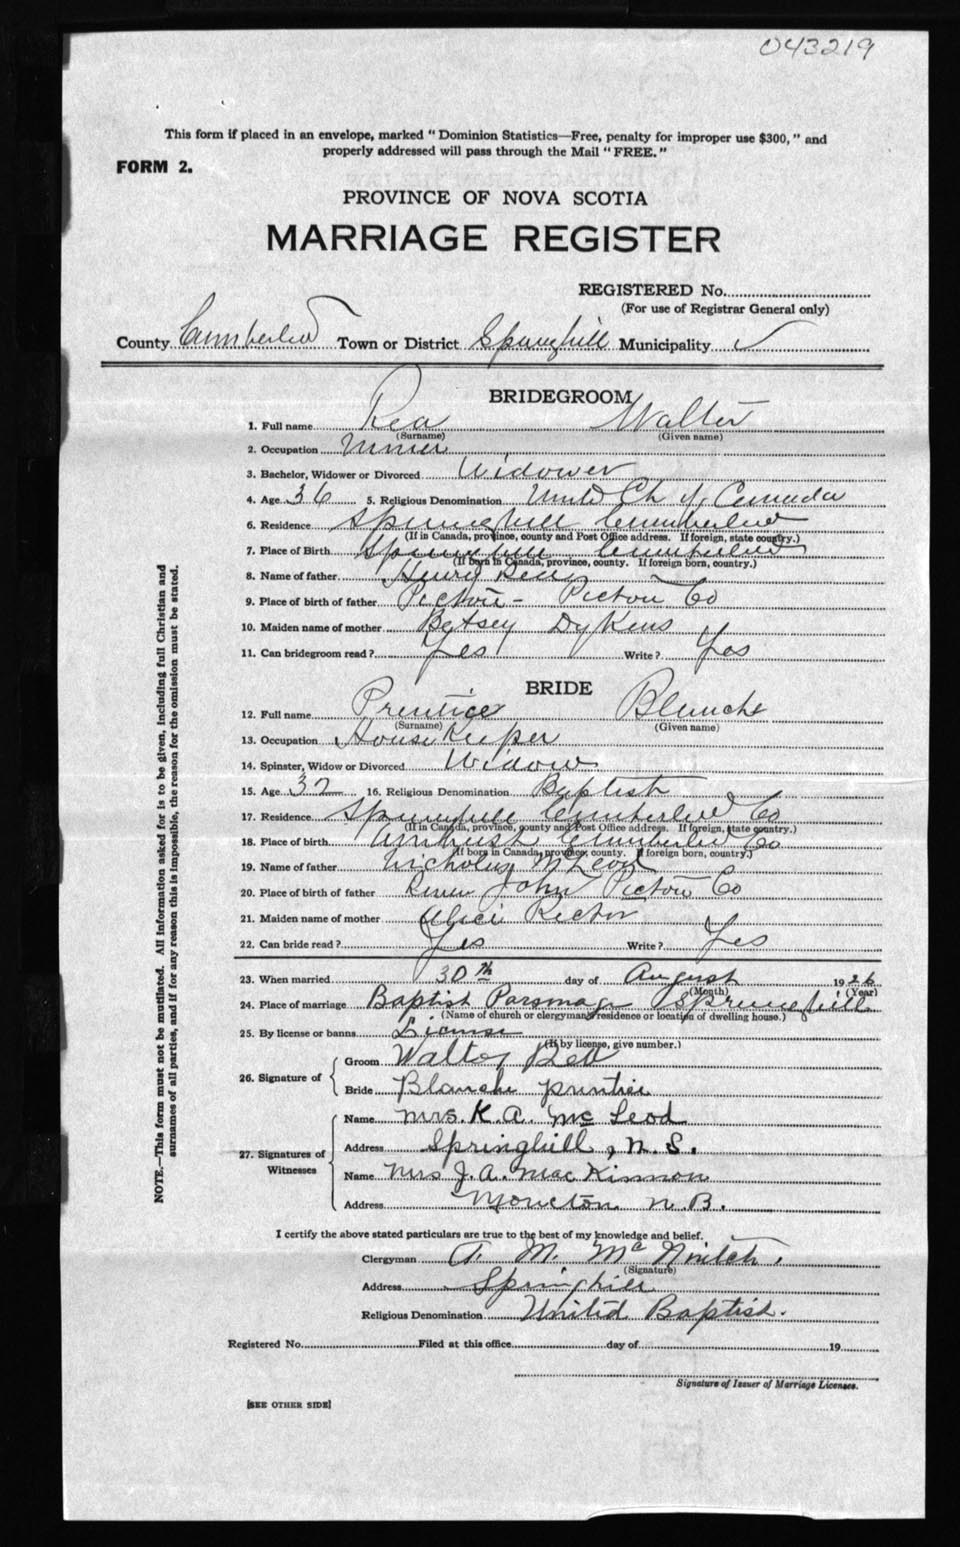 043219
This form if placed in an envelope, marked "Dominion Statistics—Free, penalty for improper use $300," and
properly addressed will pass through the Mail "FREE."
FORM 2.
PROVINCE OF NOVA SCOTIA
MARRIAGE REGISTER
REGISTERED No.
(For use of Registrar General only)
County Cumberland Town or District Springhill Municipality ✓
BRIDEGROOM
1. Full name Rea Walter
(Surname) (Given name)
2. Occupation Miner
3. Bachelor, Widower or Divorced Widower
4. Age 36 5. Religious Denomination United Ch of Canada
6. Residence Springhill Cumberland
(If in Canada, province, county and Post Office address. If foreign, state country.)
7. Place of Birth Springhill Cumberland
(If born in Canada, province, county. If foreign born, country.)
8. Name of father Henry Rea
9. Place of birth of father Pictou - Pictou Co
10. Maiden name of mother Betsey Dykens
11. Can bridegroom read? Yes Write? Yes
BRIDE
12. Full name Prentice Blanche
(Surname) (Given name)
13. Occupation House Keeper
14. Spinster, Widow or Divorced Widow
15. Age 32 16. Religious Denomination Baptist
17. Residence Springhill Cumberland Co
(If in Canada, province, county and Post Office address. If foreign, state country.)
18. Place of birth Amherst Cumberland Co
(If born in Canada, province, county. If foreign born, country.)
19. Name of father Nicholas McLeod
20. Place of birth of father River John Pictou Co
21. Maiden name of mother Alice Rector
22. Can bride read? Yes Write? Yes
23. When married 30th day of August 1926
(Month) (Year)
24. Place of marriage Baptist Parsonage Springhill
(Name of church or clergyman's residence or location of dwelling house.)
25. By license or banns License
(If by license, give number.)
26. Signature of Groom Walter Rea
Bride Blanche Prentice
27. Signatures of Witnesses Name Mrs. K. A. McLeod
Address Springhill, N. S.
Name Mrs J. A. MacKinnon
Address Moncton N. B.
I certify the above stated particulars are true to the best of my knowledge and belief.
Clergyman A. M. Mc
(Signature)
Address Springhill
Religious Denomination United Baptist.
Registered No. Filed at this office day of 19
Signature of Issuer of Marriage Licenses.
[SEE OTHER SIDE]
NOTE.—This form must not be mutilated. All information asked for is to be given, including full Christian and
surnames of all parties, and if for any reason this is impossible, the reason for the omission must be stated.